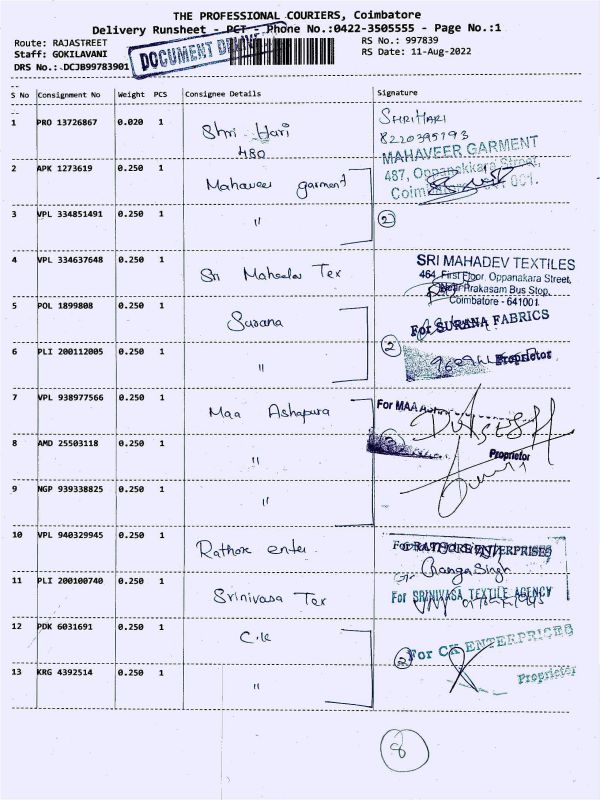 THE PROFESSIONAL COURIERS, Coimbatore
Delivery Runsheet - PCT - Phone No.:0422-3505555 - Page No.:1
Route: RAJASTREET RS No.: 997839
Staff: GOKILAVANI RS Date: 11-Aug-2022
DRS No.:-DCJB99783901
DOCUMENT
S No Consignment No Weight PCS Consignee Details Signature
1 PRO 13726867 0.020 1 Shri Hari SHRIHARI
480 8220395793
MAHAVEER GARMENT
2 APK 1273619 0.250 1 Mahaveer garment 487, Oppanakkara Street,
3 VPL 334851491 0.250 1 〃 2
SRI MAHADEV TEXTILES
4 VPL 334637648 0.250 1 Sri Tex 464, First Floor, Oppanakara Street,
Near Prakasam Bus Stop,
Coimbatore - 641001
5 POL 1899808 0.250 1 Surana For SURANA FABRICS
6 PLI 200112005 0.250 1 〃 2 Proprietor
7 VPL 938977566 0.250 1 Maa Ashapura For MAA
8 AMD 25503118 0.250 1 〃 Proprietor
9 NGP 939338825 0.250 1 〃
10 VPL 940329945 0.250 1 Rathore enter For RATHORE ENTERPRISES
Ganga Singh
11 PLI 200100740 0.250 1 Srinivasa Tex For SRINIVASA TEXTILE AGENCY
12 PDK 6031691 0.250 1 C.K For CK ENTERPRICES
2
13 KRG 4392514 0.250 1 〃 Proprietor
8